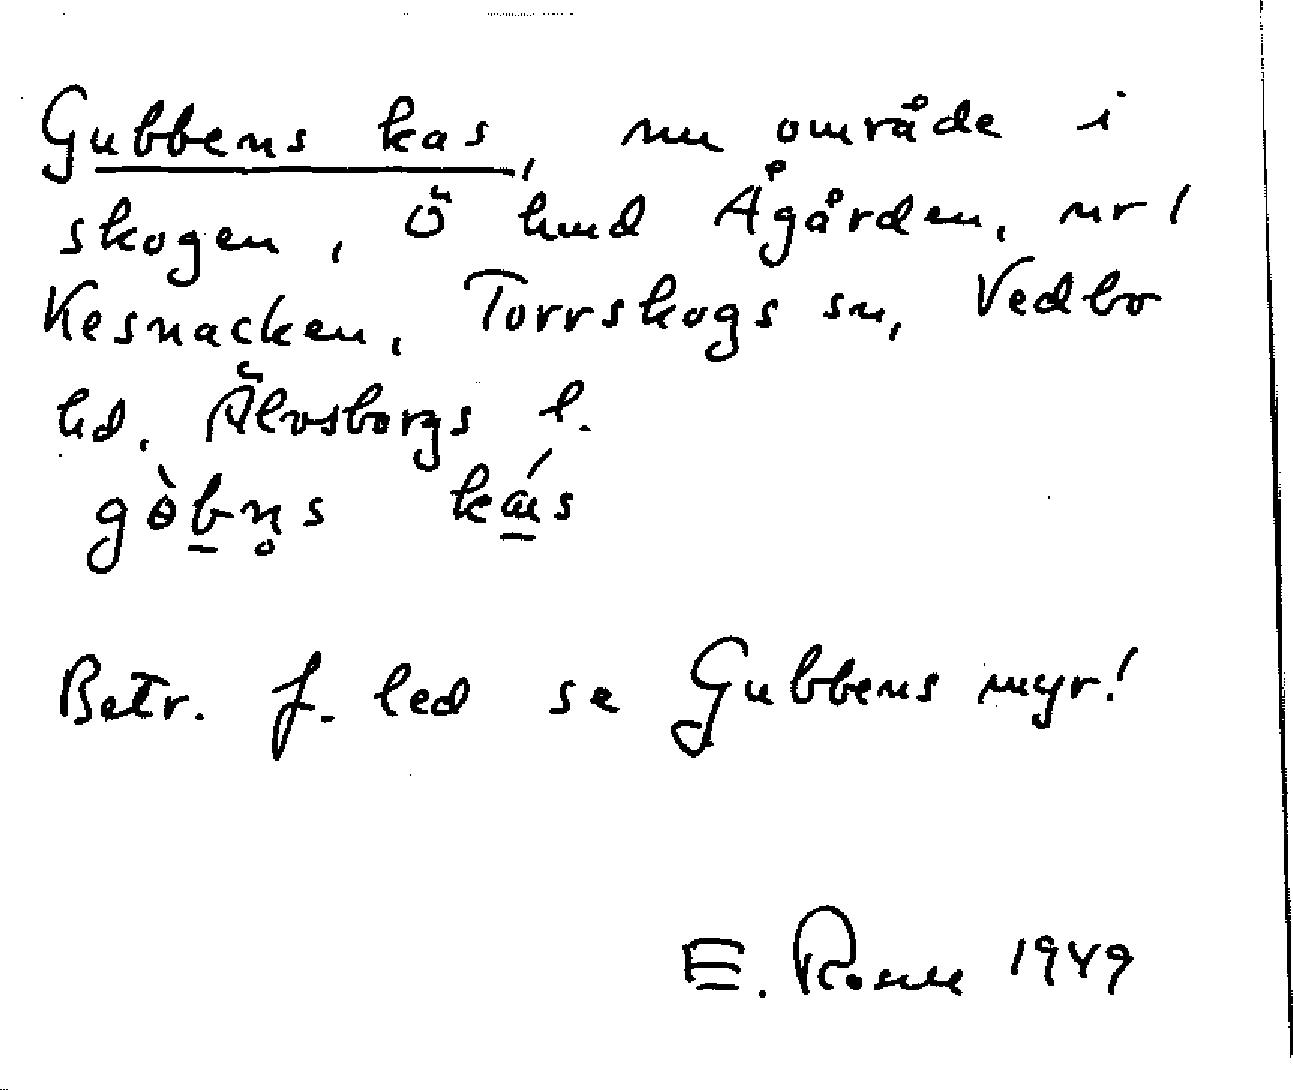 Gubbens kas, nu område i
skogen, Ö hmd Ågården, nr 1
Kesnacken, Torrskogs sn, Vedbo
hd. Älvsborgs l.
gòbn̥s ká̱s
Betr. f. led se Gubbens myr!
E. 1949